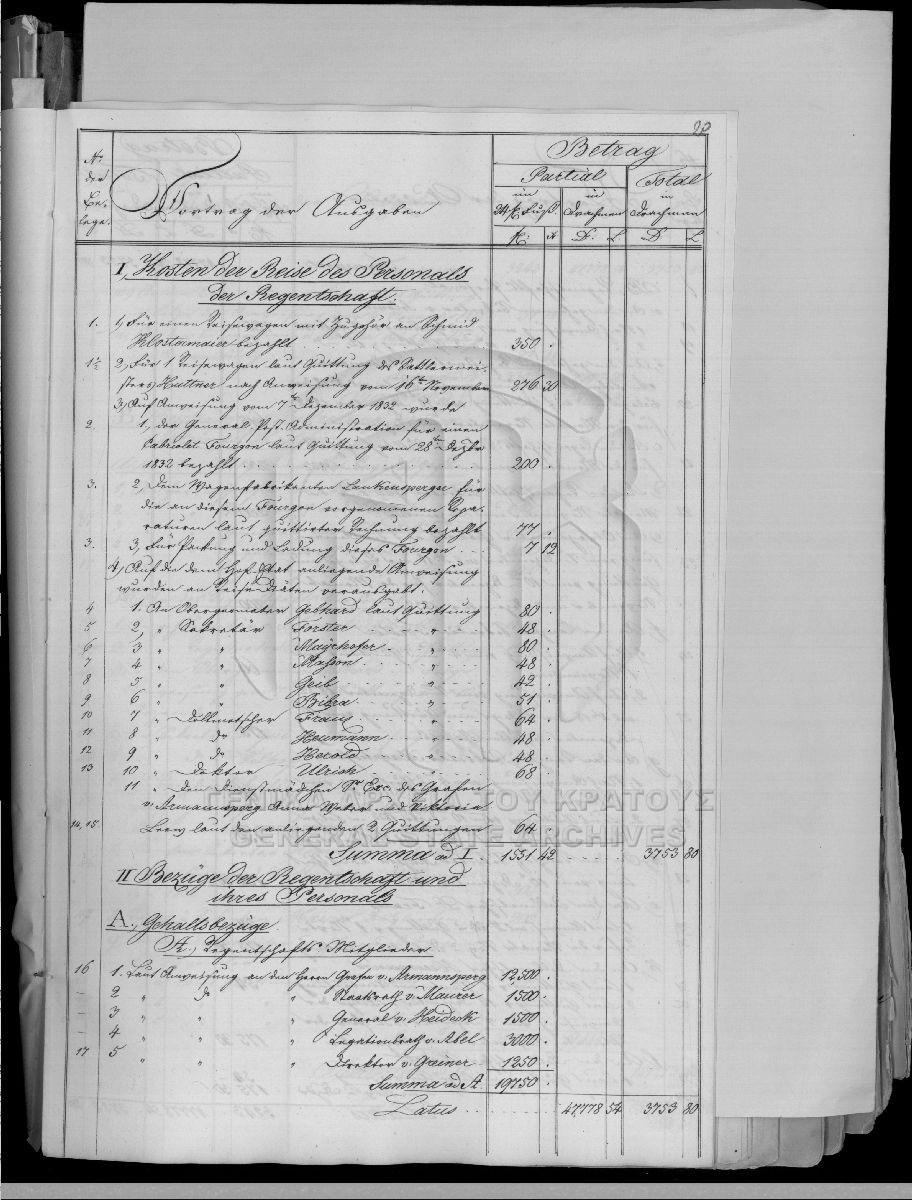 90
No
der
Be-
lege.
Vortrag der Ausgaben
Betrag
Partial
Total
im
24 f. Fuß.
in
Drachmen
in
Drachmen
f: x D: L D L
I, Kosten der Reise des Personals
der Regentschaft.
1. 1, Für einen Reisewagen mit Zugehör an Schmid
Klostermaier bezahlt 350 .
1½ 2, Für 1 Reisewagen laut Quittung des Sattlermei-
sters Huttner nach Anweisung vom 16ten November 276 30
3, Auf Anweisung vom 7ten Dezember 1832 wurde
2. 1, der General Post Administration für einen
Cabriolet Fourgon laut Quittung vom 28ten Dezbr
1832 bezahlt 200 .
3. 2, Dem Wagenfabrikanten Lankensperger für
die an diesem Fourgon vorgenommenen Repa-
raturen laut quittirter Rechnung bezahlt 77 .
3. 3, Für Packung und Ladung dieses Fourgon 7 12
4, Auf die dem Hof Etat anliegende Anweisung
wurden an Reise Diäten verausgabt.
4 1. An Obergeometer Gebhard laut Quittung 80 .
5 2, " Sekretär Forster " 48 .
6 3 " " Mayrhofer " 80 .
7 4 " " Masson " 48 .
8 5 " " Geib " 42 .
9 6 " " Bibra " 51 .
10 7 " Dollmetscher Franz " 64 .
11 8 " do Heumann " 48 .
12 9 " do Herold " 48 .
13 10 " Doktor Ulrich " 68 .
11 " den Dienstmädchen Sr Exc. des Grafen
v. Armansperg Anna Weber und Viktoria
14, 15. laut den anliegenden 2 Quittungen 64 .
Summa ad I. 1551 42 3753 80
II Bezüge der Regentschaft und
ihres Personals
A., Gehaltsbezüge.
A., Regentschafts Mitglieder
16 1. Laut Anweisung an den Herrn Grafen v. Armannsperg 12,500 .
- 2 " do " Staatsrath v. Maurer 1500 .
- 3 " " " General v. Heideck 1500 .
- 4 " " " Legationsrath v. Abel 3000 .
17 5 " " " Direktor v. Greiner 1250 .
Summa ad A 19750 .
Latus 47,778 54 3753 80
ΓΕΝΙΚΑ ΑΡΧΕΙΑ ΤΟΥ ΚΡΑΤΟΥΣ
GENERAL STATE ARCHIVES